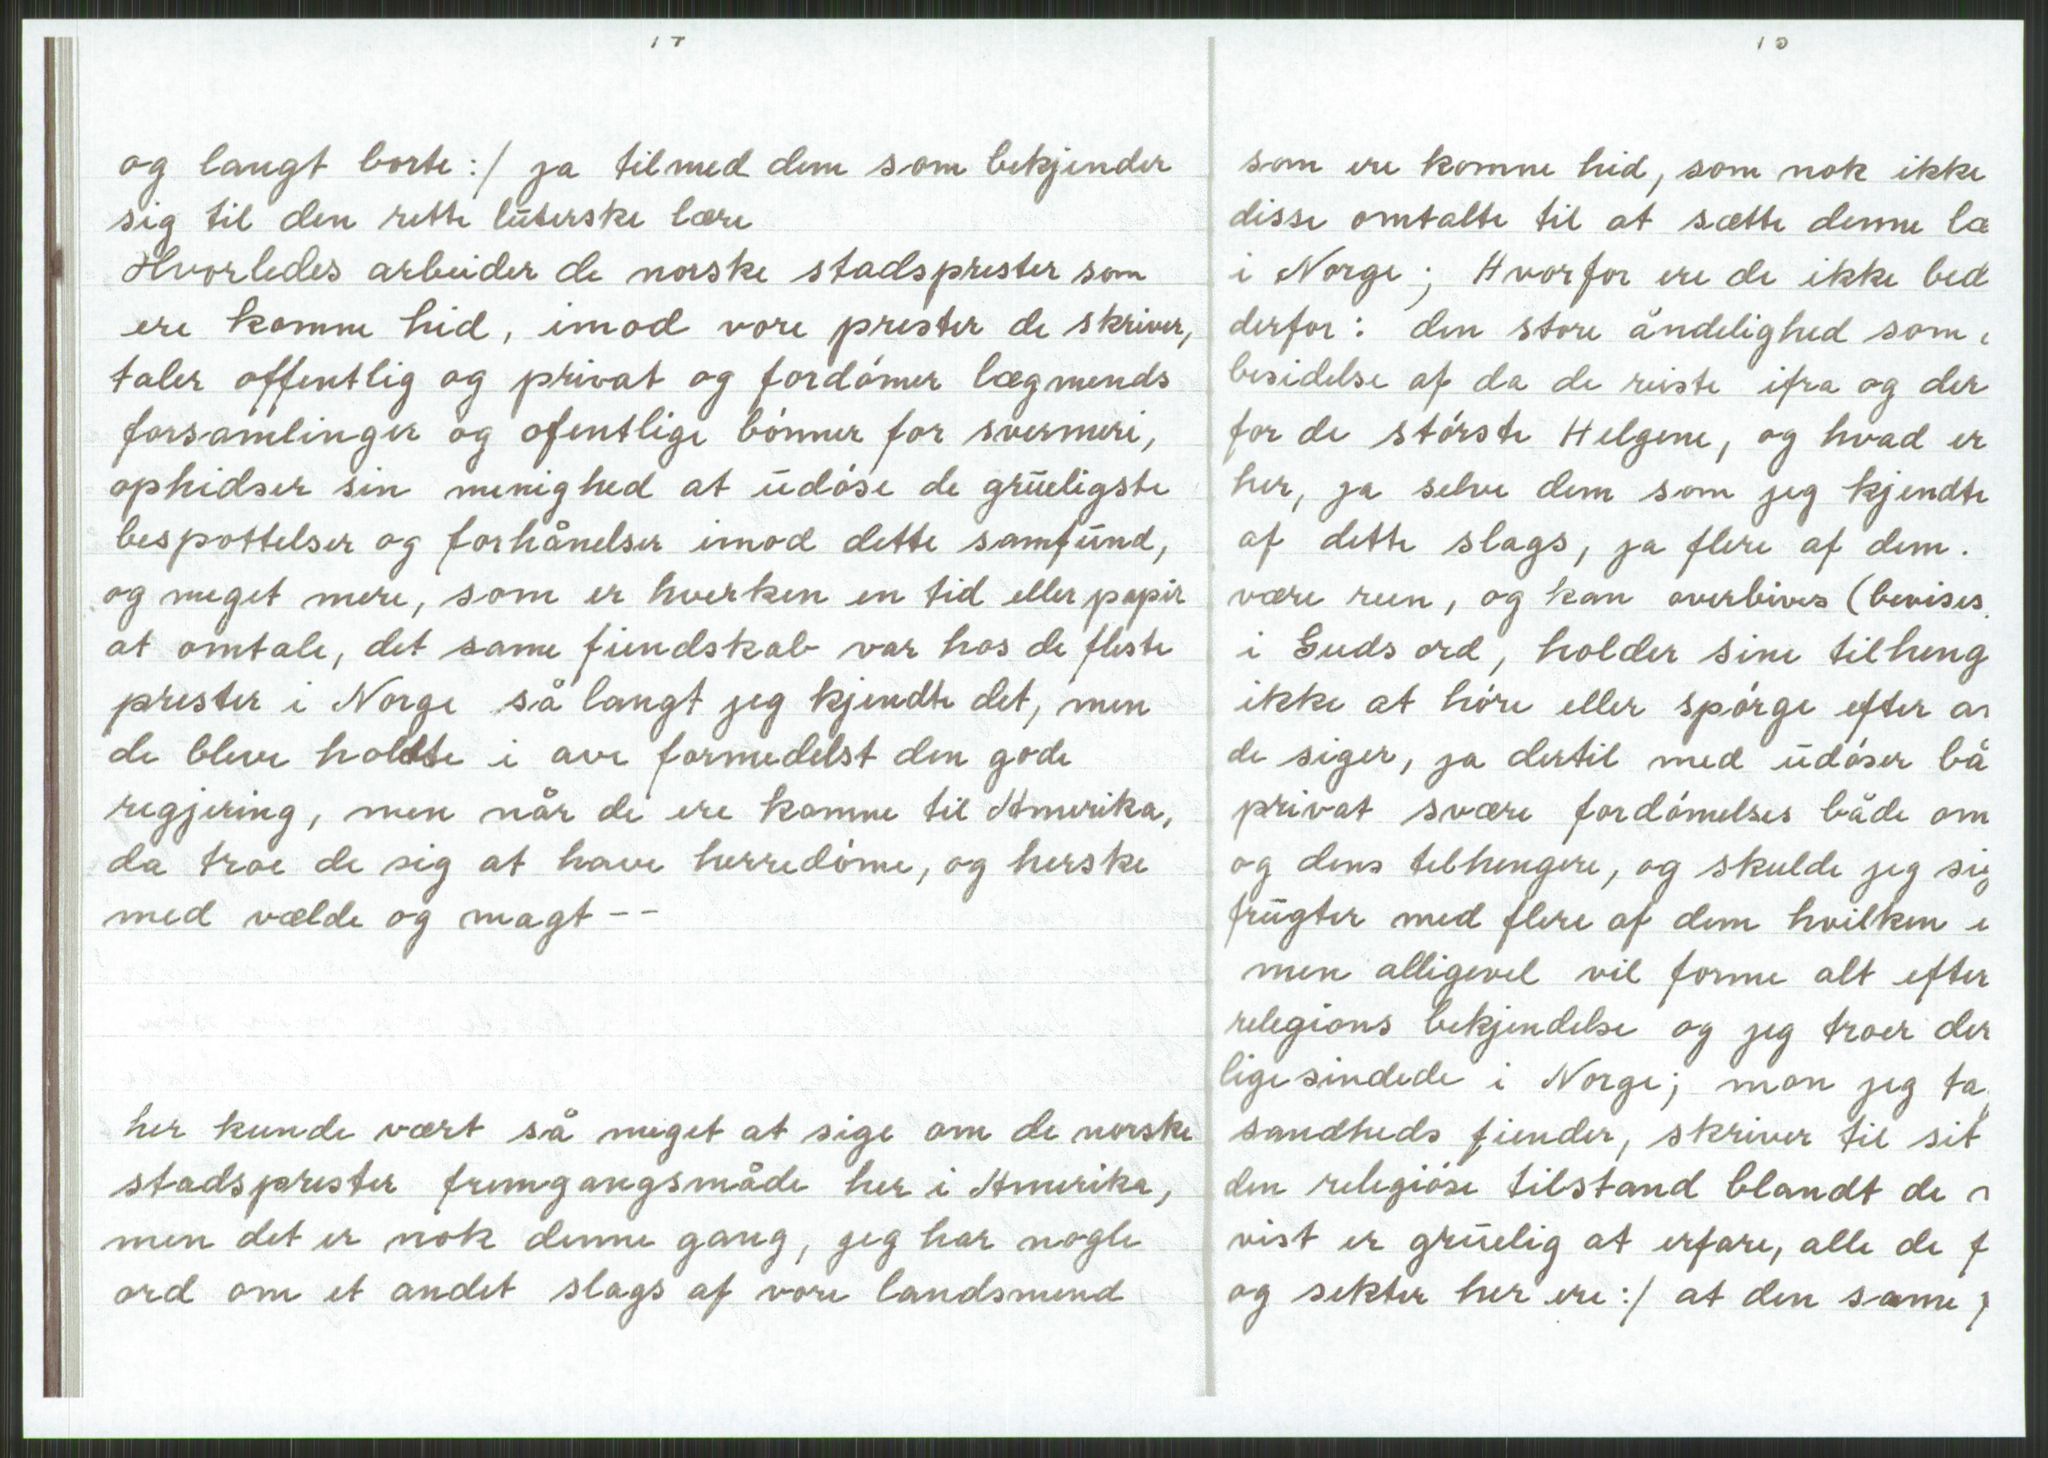 og langt borte :/ ja tilmed dem som bekjender
sig til den rette lūterske lære
Hvorledes arbeider de norske stadsprester som
ere komne hid, imod vore prester de skriver,
taler offentlig og privat og fordómer lægmends
forsamlinger og ofentlige bónner for svermeri,
ophidser sin menighed at ūdóse de grūeligste
bespottelser og forhånelser imod dette samfūnd,
og meget mere, som er hverken en tid eller papir
at omtale, det same fiendskab var hos de fleste
prester i Norge så langt jeg kjendte det, men
de bleve holdte i ave formedelst den gode
regjering, men når de ere komne til Amerika,
da troe de sig at have herredóme, og herske
med vælde og magt --
her kunde vært så meget at sige om de norske
stadsprester fremgangsmåde her i Amerika,
men det er nok denne gang, jeg har nogle
ord om et andet slags af vore landsmend
som ere komne hid, som nok ikke
disse omtalte til at sætte denne læ
i Norge; Hvorfor ere de ikke bed
derfor: den store åndelighed som
besidelse af da de reiste ifra og der
for de stórste Helgene, og hvad er
her, ja selve dem som jeg kjendte
af dette slags, ja flere af dem.
være reen, og kan overbives (bevises
i Guds ord, holder sine tilheng
ikke at hóre eller spórge efter
de siger, ja dertil med ūdóser bå
privat svære fordómelses både om
og dens tilhengere, og skulde jeg sig
frūgter med flere af dem hvilken
men alligevel vil forme alt efter
relegions bekjendelse og jeg troer der
ligesindede i Norge; mon jeg ta
sandheds fiender, skriver til sit
den relegióse tilstand blandt de
vist er grūelig at erfare, alle de f
og sekter her ere :/ at den same